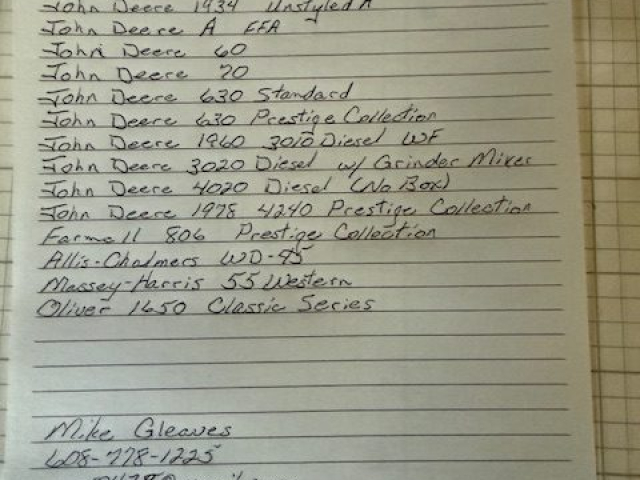 John Deere 1934 Unstyled A
John Deere A FFA
John Deere 60
John Deere 70
John Deere 630 Standard
John Deere 630 Prestige Collection
John Deere 1960 3010 Diesel WF
John Deere 3020 Diesel w/ Grinder Mixer
John Deere 4020 Diesel (No Box)
John Deere 1978 4240 Prestige Collection
Farmall 806 Prestige Collection
Allis-Chalmers WD-45
Massey-Harris 55 Western
Oliver 1650 Classic Series
Mike Gleaves
608-778-1225